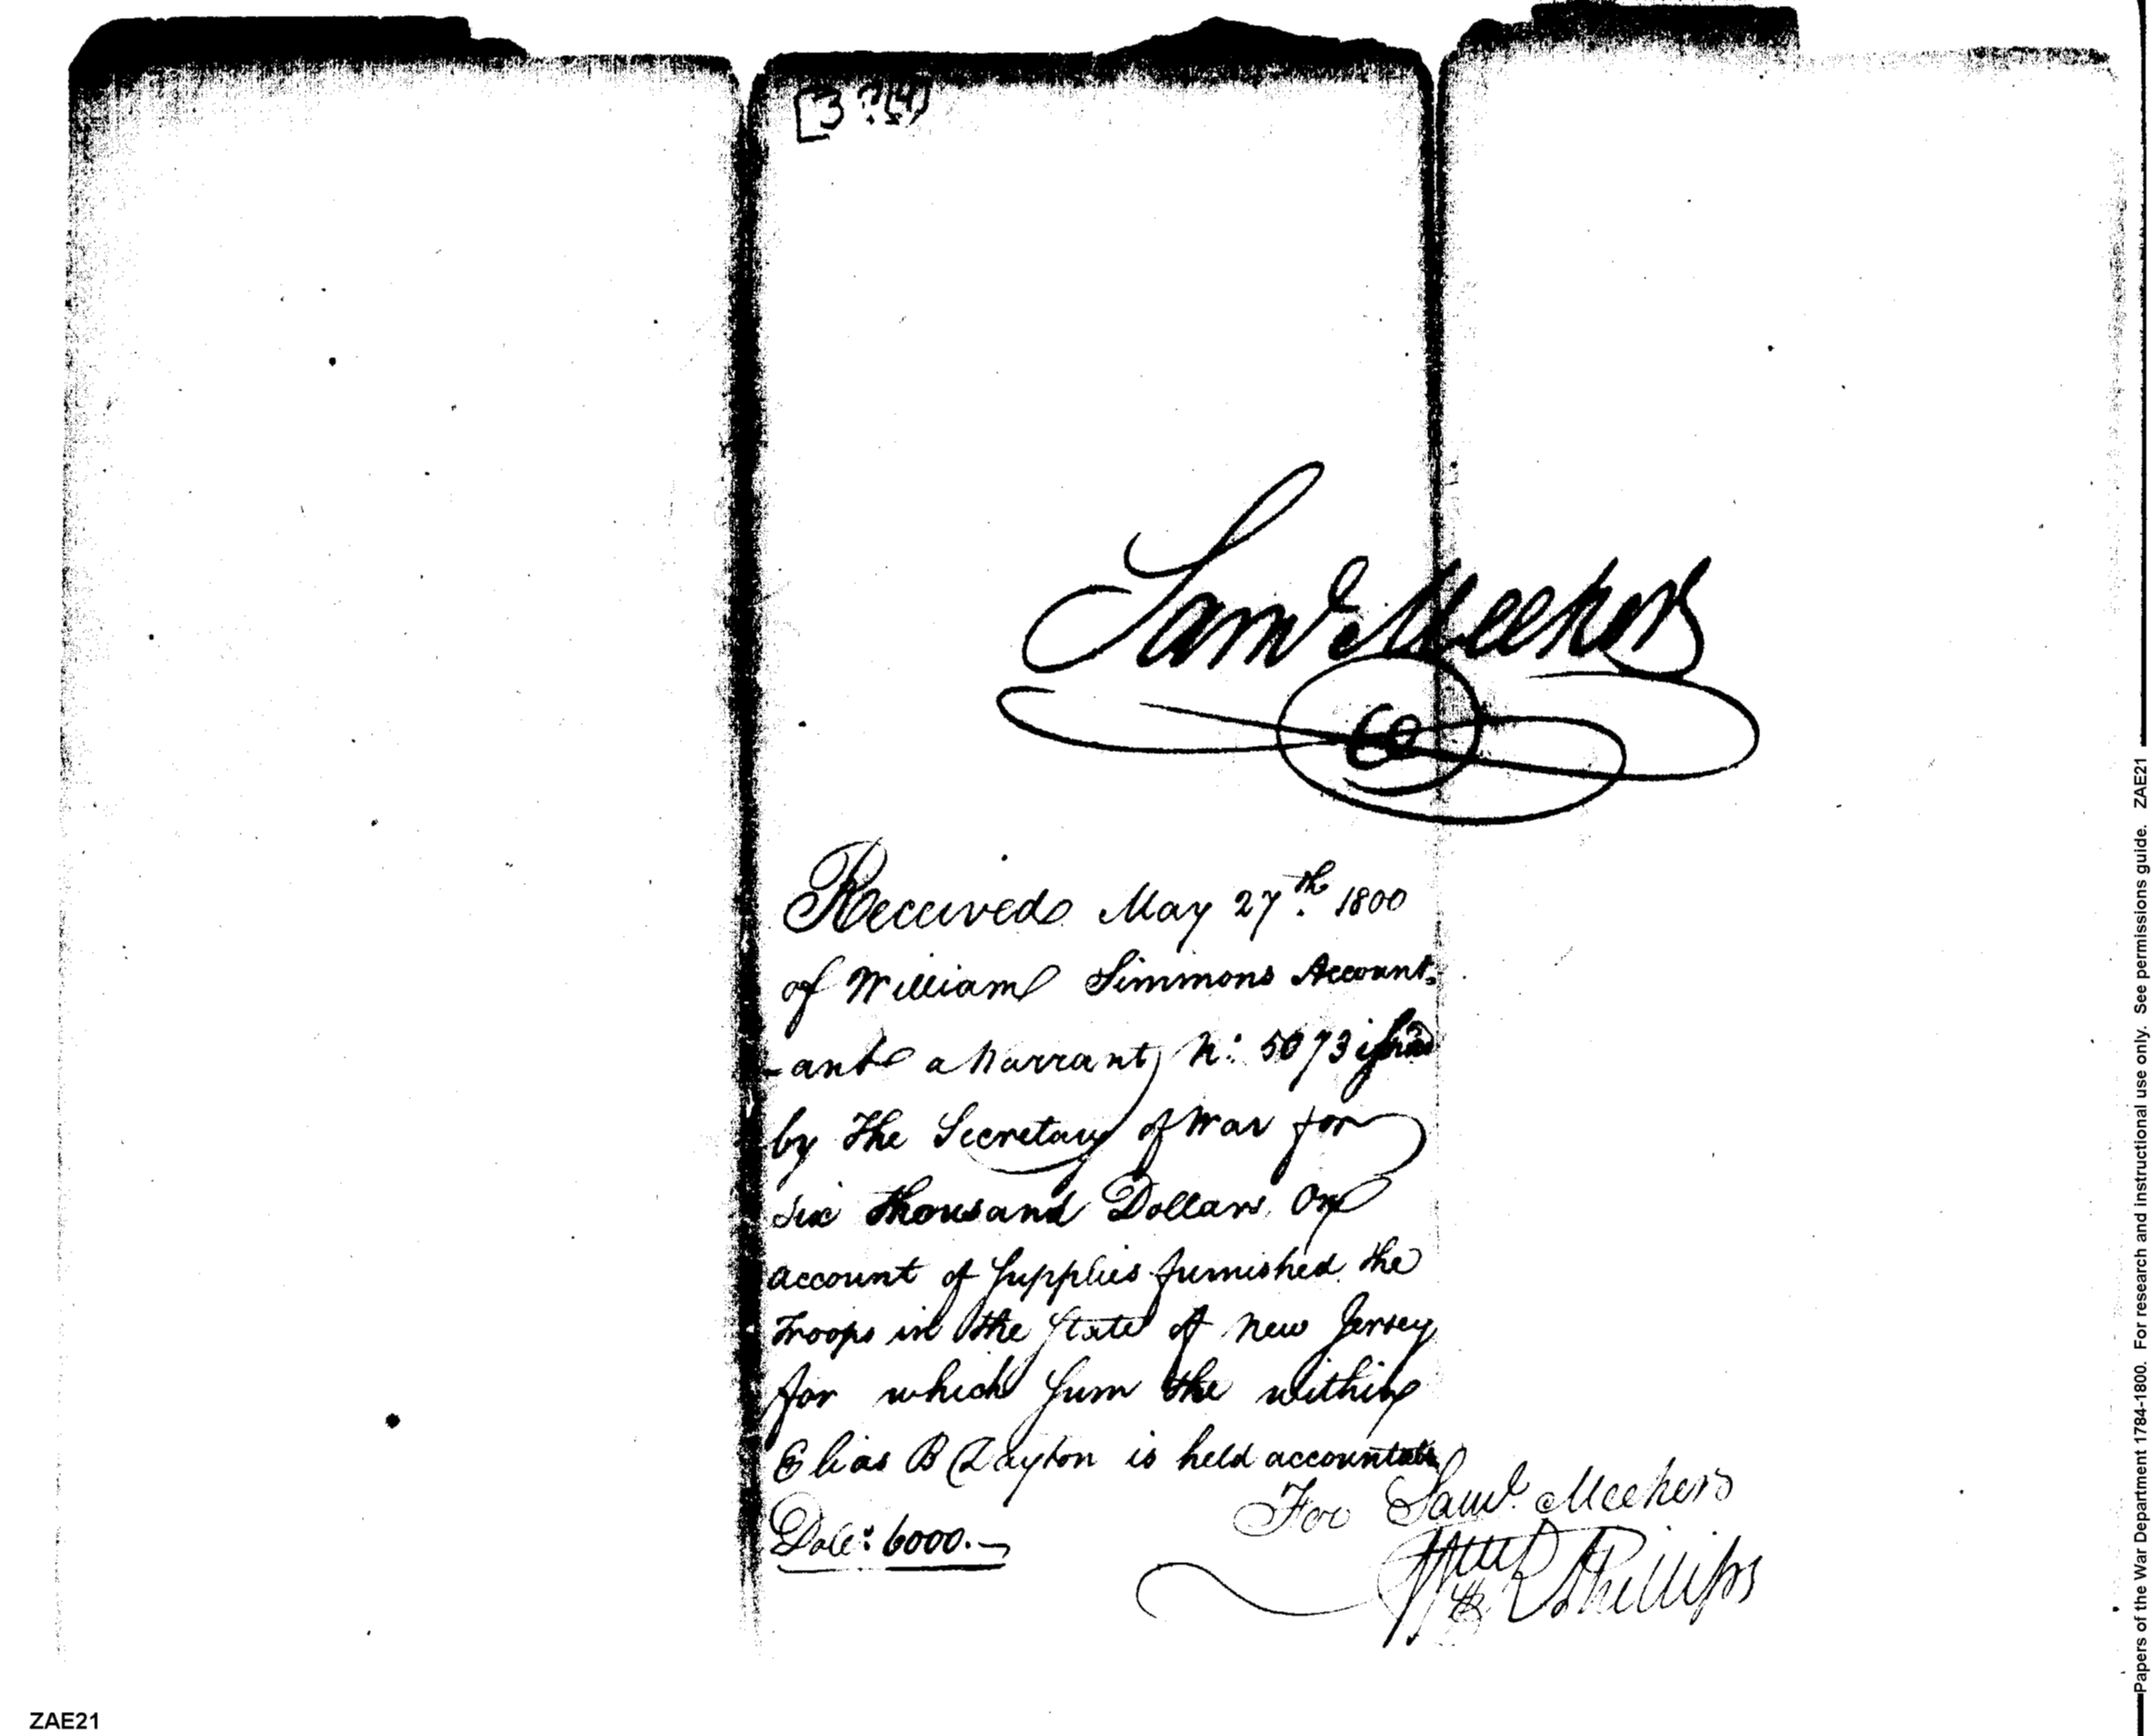 [3 ?(4)
Saml Meeker
Received May 27th 1800
of William Simmons Account-
-ant a Warrant No: 5073 issued
by The Secretary of War for
Six thousand Dollars, On
account of Supplies furnished the
Troops in the State of New Jersey
for which Sum the within
Elias B Dayton is held accountable
Dolls: 6000.—
For Saml. Meeker
Phillips
ZAE21
Papers of the War Department 1784-1800. For research and instructional use only. See permissions guide. ZAE21